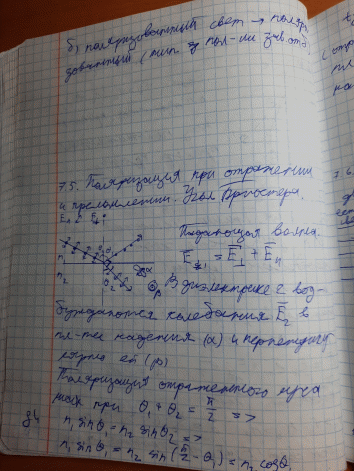 б) поляризованный свет → поляри-
зованный (тип
7.5. Поляризация при отражении
и преломлении. Угол Брюстера.
Падающая волна
E₁ = E⊥ + E
n₁
n₂
В диэлектрике 2 воз-
буждаются колебания E₂ в
пл-ти падения (α) и перпендику
лярно ей (β)
Поляризация отраженного луча
max при θ₁ + θ₂ = π/2 =>
n₁ sinθ₁ = n₂ sinθ₂ =>
n₁ sinθ₁ = n₂ sin(π/2 - θ₁) = n₂ cosθ
84